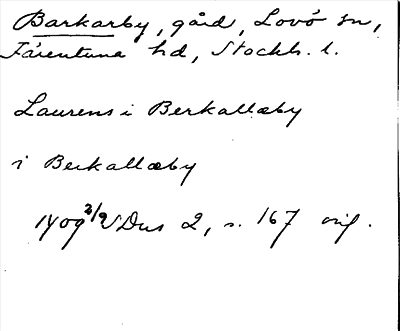 Barkarby, gård, Lovö sn,
Färentuna hd, Stockh. l.
Laurens i Berkallæby
i Berkallæby
1409 2/2 Dus 2, s. 167 orig.